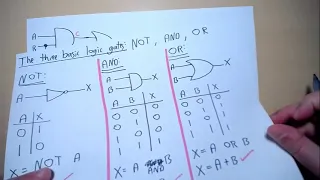 A
C
B
The three basic logic gates: NOT, AND, OR
NOT:
A X
A X
0 1
1 0
X = NOT A
AND:
A X
B
A B X
0 0 0
0 1 0
1 0 0
1 1 1
X = A AND B
OR:
A X
B
A B X
0 0 0
0 1 1
1 0 1
1 1 1
X = A OR B
X = A + B